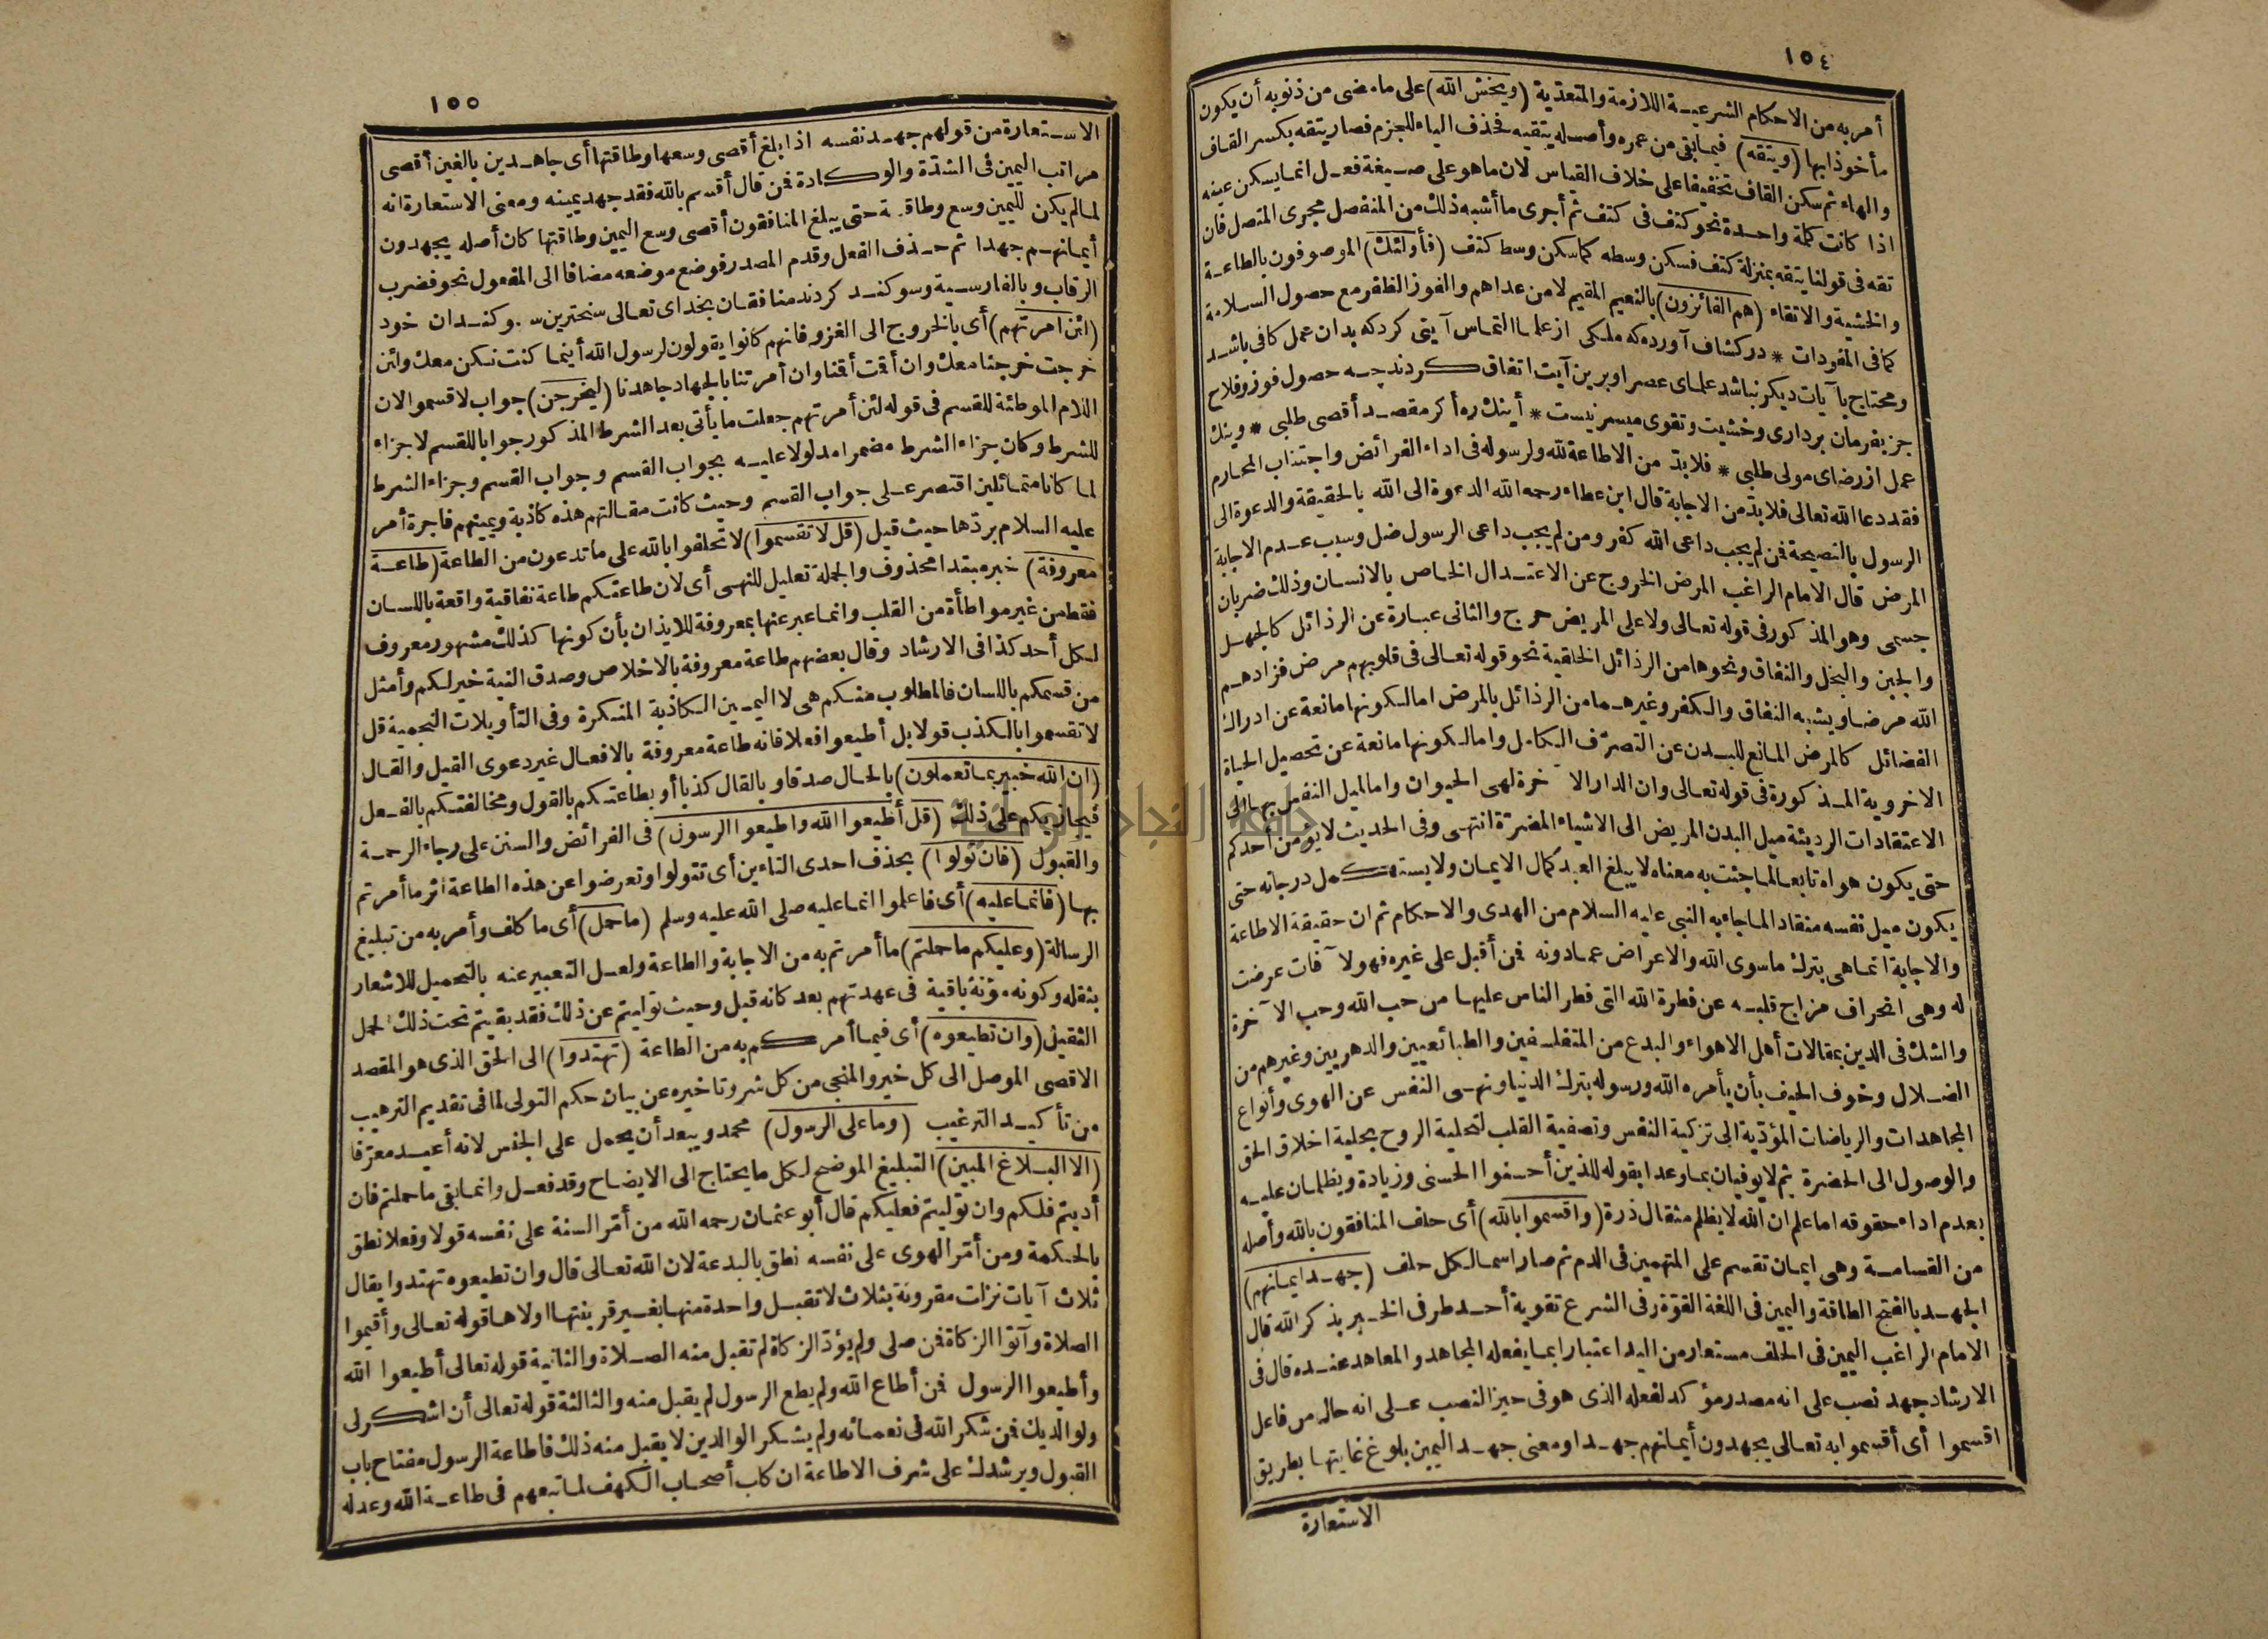 ١٥٤
أمر به من الاحكام الشرعية اللازمة والمتعدية (ويخش الله) على ما مضى من ذنوبه أن يكون
مأخوذا بها (ويتقه) فيما بقى من عمره وأصله يتقيه فحذف الياء للجزم فصار يتقه بكسر القاف
والهاء ثم سكن القاف تخفيفا على خلاف القياس لان ما هو على صيغة فعل انما يسكن عينه
اذا كانت كلمة واحدة نحو كتف فى كتف ثم أجرى ما أشبه ذلك من المنفصل مجرى المتصل فان
تقه فى قولنا يتقه بمنزلة كتف فسكن وسطه كما سكن وسط كتف (فأولئك) الموصوفون بالطاعة
والخشية والاتقاء (هم الفائزون) بالنعيم المقيم لا من عداهم والفوز الظفر مع حصول السلامة
كما فى المفردات * در كشاف آورده كه ملكى از علما التماس آيتى كرد كه بدان عمل كافى باشد
ومحتاج بآيات ديكر نباشد علماى عصر او برين آيت اتفاق كردند چه حصول فوز وفلاح
جز بفرمان بردارى وخشيت وتقوى ميسر نيست * أينك ره أكر مقصد أقصى طلبى * وينك
عمل ار رضاى مولى طلبى * فلا بدّ من الاطاعة لله ولرسوله فى اداء الفرائض واجتناب المحارم
فقد دعا الله تعالى فلا بدّ من الاجابة قال ابن عطاء رحمه الله الدعوة الى الله بالحقيقة والدعوة الى
الرسول بالنصيحة فمن لم يجب داعى الله كفر ومن لم يجب داعى الرسول ضل وسبب عدم الاجابة
المرض قال الامام الراغب المرض الخروج عن الاعتدال الخاص بالانسان وذلك ضربان
جسمى وهو المذكور فى قوله تعالى ولا على المريض حرج والثانى عبارة عن الرذائل كالجهل
والجبن والبخل والنفاق ونحوها من الرذائل الخلقية نحو قوله تعالى فى قلوبهم مرض فزادهم
الله مرضا ويشبه النفاق والكفر وغيرهما من الرذائل بالمرض اما لكونها مانعة عن ادراك
الفضائل كالمرض المانع للبدن عن التصرّف الكامل واما لكونها مانعة عن تحصيل الحياة
الاخروية المذكورة فى قوله تعالى وان الدار الآخرة لهى الحيوان واما لميل النفس بها الى
الاعتقادات الرديئة ميل البدن المريض الى الاشياء المضرّة انتهى وفى الحديث لا يؤمن أحدكم
حتى يكون هواه تابعا لما جئت به معناه لا يبلغ العبد كمال الايمان ولا يستكمل درجاته حتى
يكون ميل نفسه منقادا لما جاء به النبى عليه السلام من الهدى والاحكام ثم ان حقيقة الاطاعة
والاجابة انما هى بترك ما سوى الله والاعراض عما دونه فمن أقبل على غيره فهو لآفات عرضت
له وهى انحراف مزاج قلبه عن فطرة الله التى فطر الناس عليها من حب الله وحب الآخرة
والشك فى الدين بمقالات أهل الاهواء والبدع من المتفلسفين والطبائعيين والدهريين وغيرهم من
الضلال وخوف الحيف بأن يأمره الله ورسوله بترك الدنيا ونهى النفس عن الهوى وأنواع
المجاهدات والرياضات المؤدّية الى تزكية النفس وتصفية القلب لتحلية الروح بحلية اخلاق الحق
والوصول الى الحضرة ثم لا يوفيان بما وعدا بقوله للذين أحسنوا الحسنى وزيادة ويظلمان عليه
بعدم اداء حقوقه اما علم ان الله لا يظلم مثقال ذرة (وأقسموا بالله) أى حلف المنافقون بالله وأصله
من القسامة وهى ايمان تقسم على المتهمين فى الدم ثم صار اسما لكل حلف (جهد ايمانهم)
الجهد بالفتح الطاقة واليمين فى اللغة القوّة وفى الشرع تقوية أحد طرفى الخبر بذكر الله قال
الامام الراغب اليمين فى الحلف مستعار من اليد اعتبارا بما يفعله المجاهد والمعاهد عنده قال فى
الارشاد جهد نصب على انه مصدر مؤكد لفعله الذى هو فى حيز النصب على انه حال من فاعل
اقسموا أى أقسموا به تعالى يجهدون أيمانهم جهدا ومعنى جهد اليمين بلوغ غايتها بطريق
الاستعارة
١٥٥
الاستعارة من قولهم جهد نفسه اذا بلغ أقصى وسعها وطاقتها أى جاهدين بالغين أقصى
مراتب اليمين فى الشدّة والوكادة فمن قال أقسم بالله فقد جهد يمينه ومعنى الاستعارة انه
لما لم يكن لليمين وسع وطاقة حتى يبلغ المنافقون أقصى وسع اليمين وطاقتها كان أصله يجهدون
أيمانهم جهدا ثم حذف الفعل وقدم المصدر فوضع موضعه مضافا الى المفعول نحو فضرب
الرقاب وبالفارسية وسوكند كردند منافقان بخداى تعالى سختريٖن سوكندان خود
(لئن امرتهم) أى بالخروج الى الغزو فانهم كانوا يقولون لرسول الله أينما كنت نكن معك ولئن
خرجت خرجنا معك وان أقت أقنا وان أمرتنا بالجهاد جاهدنا (ليخرجن) جواب لاقسموا لان
اللام الموطئة للقسم فى قوله لئن أمرتهم جعلت ما يأتى بعد الشرط المذكور جوابا للقسم لا جزاء
للشرط وكان جزاء الشرط مضمرا مدلولا عليه بجواب القسم وجواب القسم وجزاء الشرط
لما كانا متماثلين اقتصر على جواب القسم وحيث كانت مقالتهم هذه كاذبة ويمينهم فاجرة أمر
عليه السلام بردّها حيث قيل (قل لا تقسموا) لا تحلفوا بالله على ما تدعون من الطاعة (طاعة
معروفة) خبر مبتدا محذوف والجملة تعليل للنهى أى لان طاعتكم طاعة نفاقية واقعة باللسان
فقط من غير مواطأة من القلب وانما عبر عنها بمعروفة للايذان بأن كونها كذلك مشهور معروف
لكل أحد كذا فى الارشاد وقال بعضهم طاعة معروفة بالاخلاص وصدق النية خير لكم وأمثل
من قسمكم باللسان فالمطلوب منكم هى لا اليمين الكاذبة المنكرة وفى التأويلات النجمية قل
لا تقسموا بالكذب قولا بل أطيعوا فعلا فانه طاعة معروفة بالافعال غير دعوى القيل والقال
(ان الله خبير بما تعملون) بالحال صدقا وبالقال كذبا أو بطاعتكم بالقول ومخالفتكم بالفعل
فيجازيكم على ذلك (قل أطيعوا الله واطيعوا الرسول) فى الفرائض والسنن على رجاء الرحمة
والقبول (فان تولوا) بحذف احدى التاءين أى تتولوا وتعرضوا عن هذه الطاعة اثر ما أمرتم
بها (فانما عليه) أى فاعلموا انما عليه صلى الله عليه وسلم (ما حمل) أى ما كلف وأمر به من تبليغ
الرسالة (وعليكم ما حملتم) ما أمرتم به من الاجابة والطاعة ولعل التعبير عنه بالتحميل للاشعار
بثقله وكونه مؤنة باقية فى عهدتهم بعد كانه قيل وحيث توليتم عن ذلك فقد بقيتم تحت ذلك الحمل
الثقيل (وان تطيعوه) أى فيما أمركم به من الطاعة (تهتدوا) الى الحق الذى هو المقصد
الاقصى الموصل الى كل خير والمنجى من كل شر وتاخيره عن بيان حكم التولى لما فى تقديم الترهيب
من تأكيد الترغيب (وما على الرسول) محمد ويبعد أن يحمل على الجنس لانه أعيد معرّفا
(الا البلاغ المبين) التبليغ الموضح لكل ما يحتاج الى الايضاح وقد فعل وانما بقى ما حملتم فان
أديتم فلكم وان توليتم فعليكم قال أبو عثمان رحمه الله من أمّر السنة على نفسه قولا وفعلا نطق
بالحكمة ومن أمّر الهوى على نفسه نطق بالبدعة لان الله تعالى قال وان تطيعوه تهتدوا يقال
ثلاث آيات نزلت مقرونة بثلاث لا تقبل واحدة منها بغير قرينتها اولاها قوله تعالى وأقيموا
الصلاة وآتوا الزكاة فمن صلى ولم يؤدّ الزكاة لم تقبل منه الصلاة والثانية قوله تعالى أطيعوا الله
وأطيعوا الرسول فمن أطاع الله ولم يطع الرسول لم يقبل منه والثالثة قوله تعالى أن اشكر لى
ولوالديك فمن شكر الله فى نعمائه ولم يشكر الوالدين لا يقبل منه ذلك فاطاعة الرسول مفتاح باب
القبول ويرشدك على شرف الاطاعة ان كلب أصحاب الكهف لما تبعهم فى طاعة الله وعد له